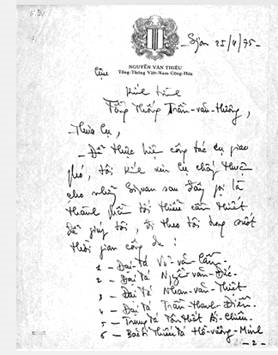 Sgon 25/4/75-
NGUYỄN VĂN THIỆU
Tổng-Thống Việt-Nam Cộng-Hòa
Kính trình
Tổng Thống Trần-văn-Hương,
Thưa Cụ,
- Để thực hiện công tác Cụ giao
phó, tôi kính xin Cụ chấp thuận
cho những Sĩ quan sau đây gọi là
thành phần tối thiểu cần thiết
để giúp tôi, đi theo tôi trong suốt
thời gian công du:
1 - Đại-Tá Võ-văn-Cầm.
2 - Đại Tá Nguyễn-văn-Đức.
3 - Đại-Tá Nhan-văn-Thiệt
4 - Đại Tá Trần-Thanh-Điền.
5 - Trung-Tá Tôn Thất Ái-Chiêu.
6 - Bác Sĩ Thiếu Tá Hồ-vương-Minh
-2-